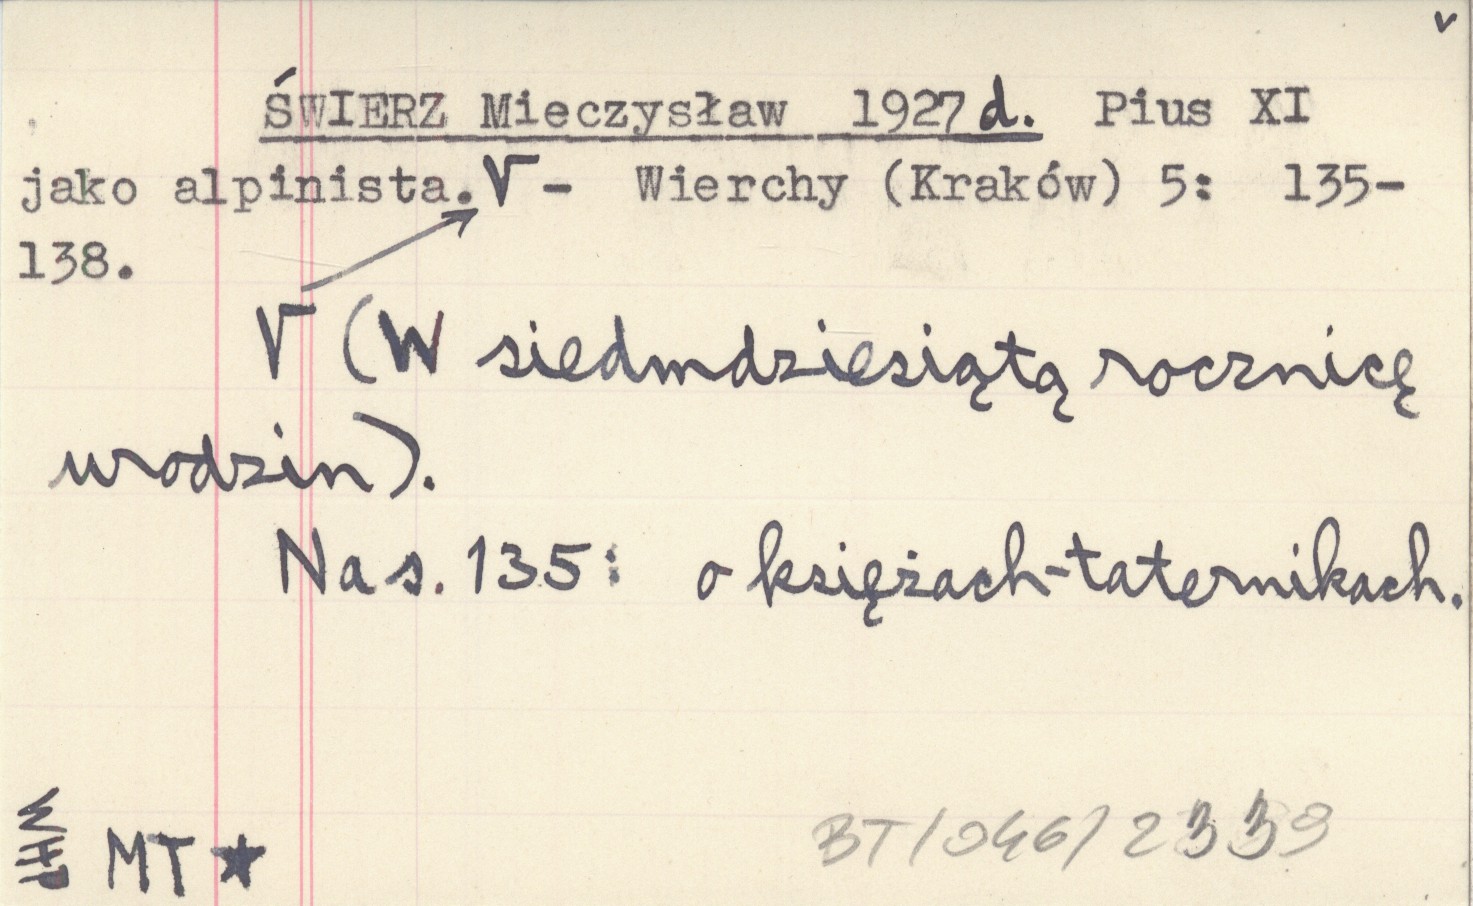 v
ŚWIERZ Mieczysław 1927d. Pius XI
jako alpinista.V- Wierchy (Kraków) 5: 135-
138.
V (W siedmdziesiątą rocznicę
urodzin).
Na s. 135: o księżach-taternikach.
MT ★
BT/046/2339